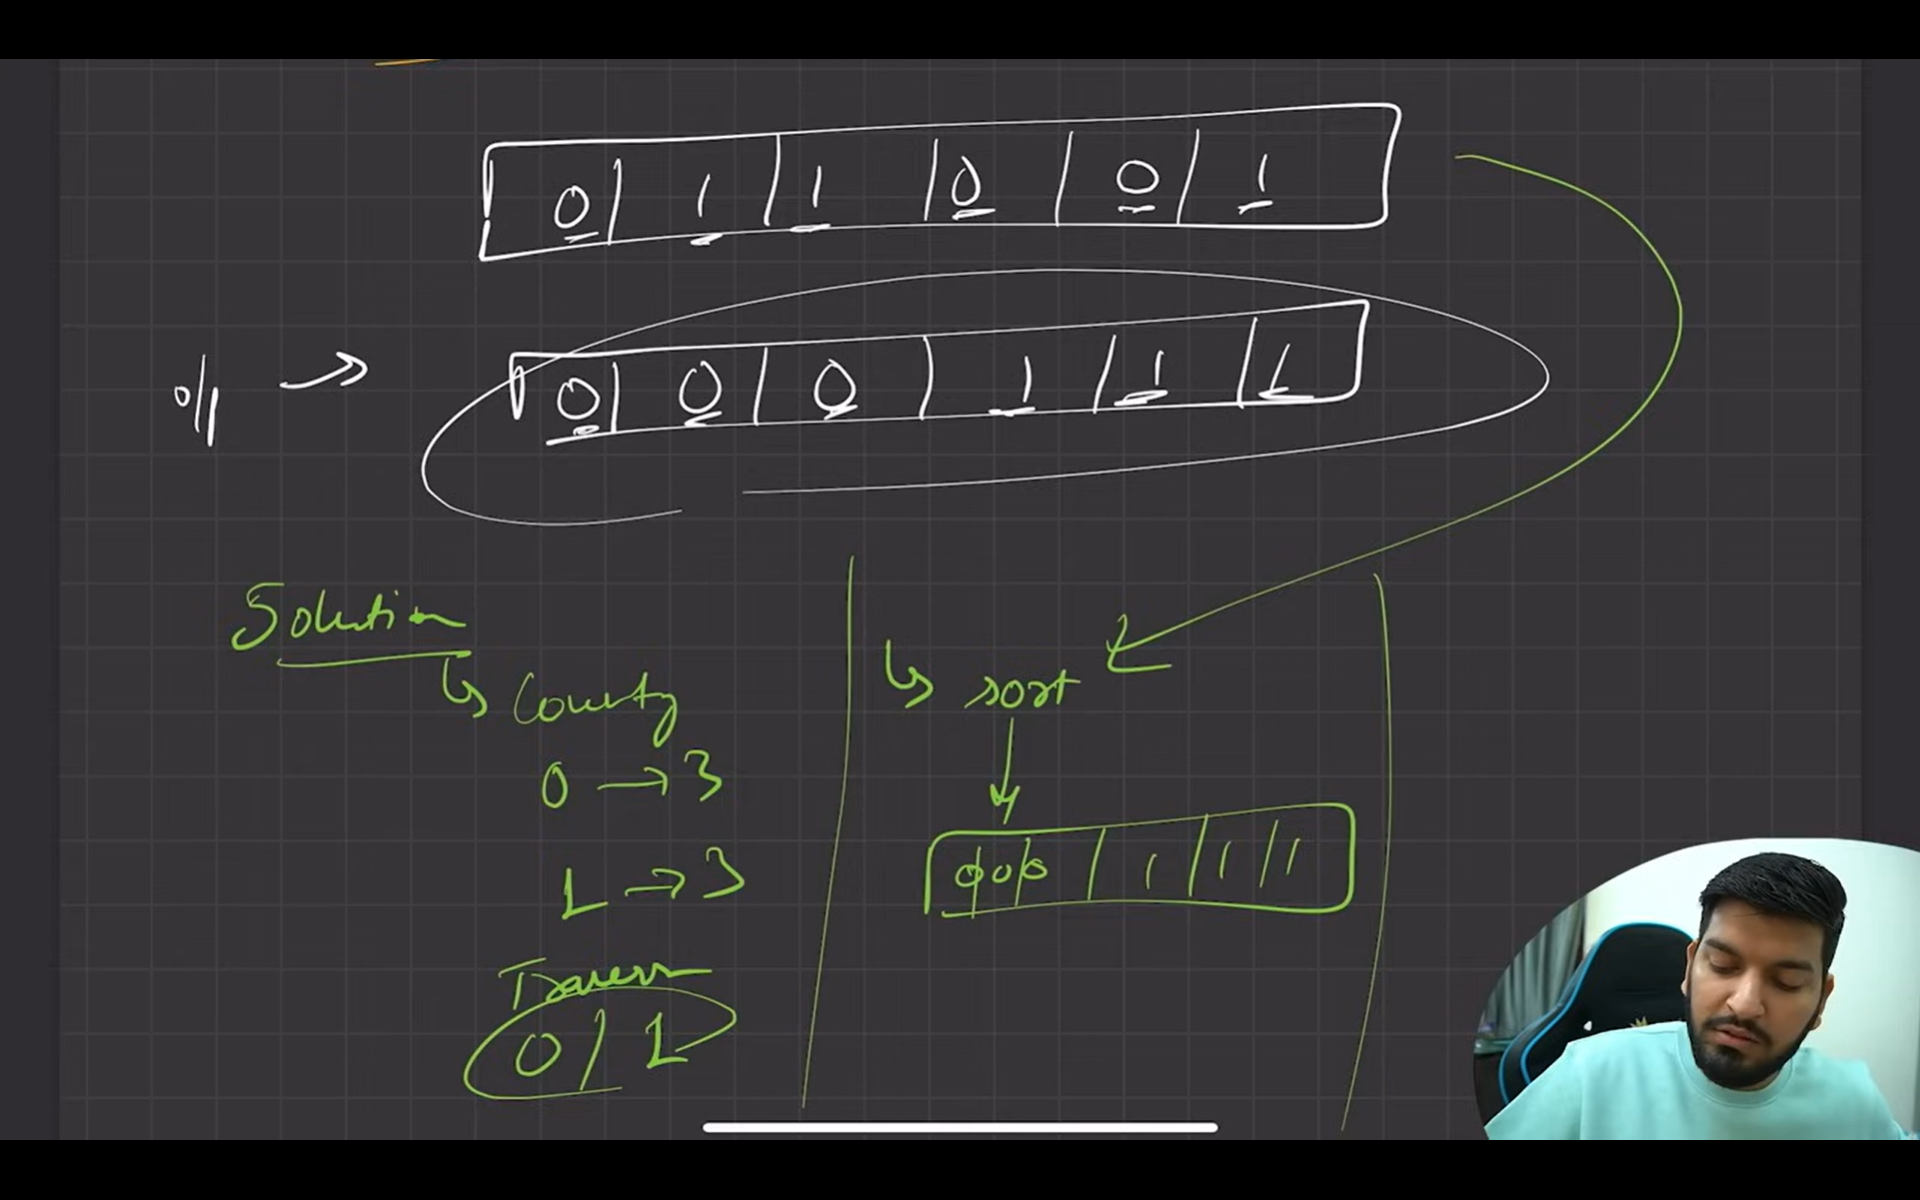 0 | 1 | 1 | 0 | 0 | 1
o/p → 0 | 0 | 0 | 1 | 1 | 1
Solution
↳ County
0 → 3
1 → 3
Travers
0 / 1
↳ sort
0 | 0 | 0 | 1 | 1 | 1